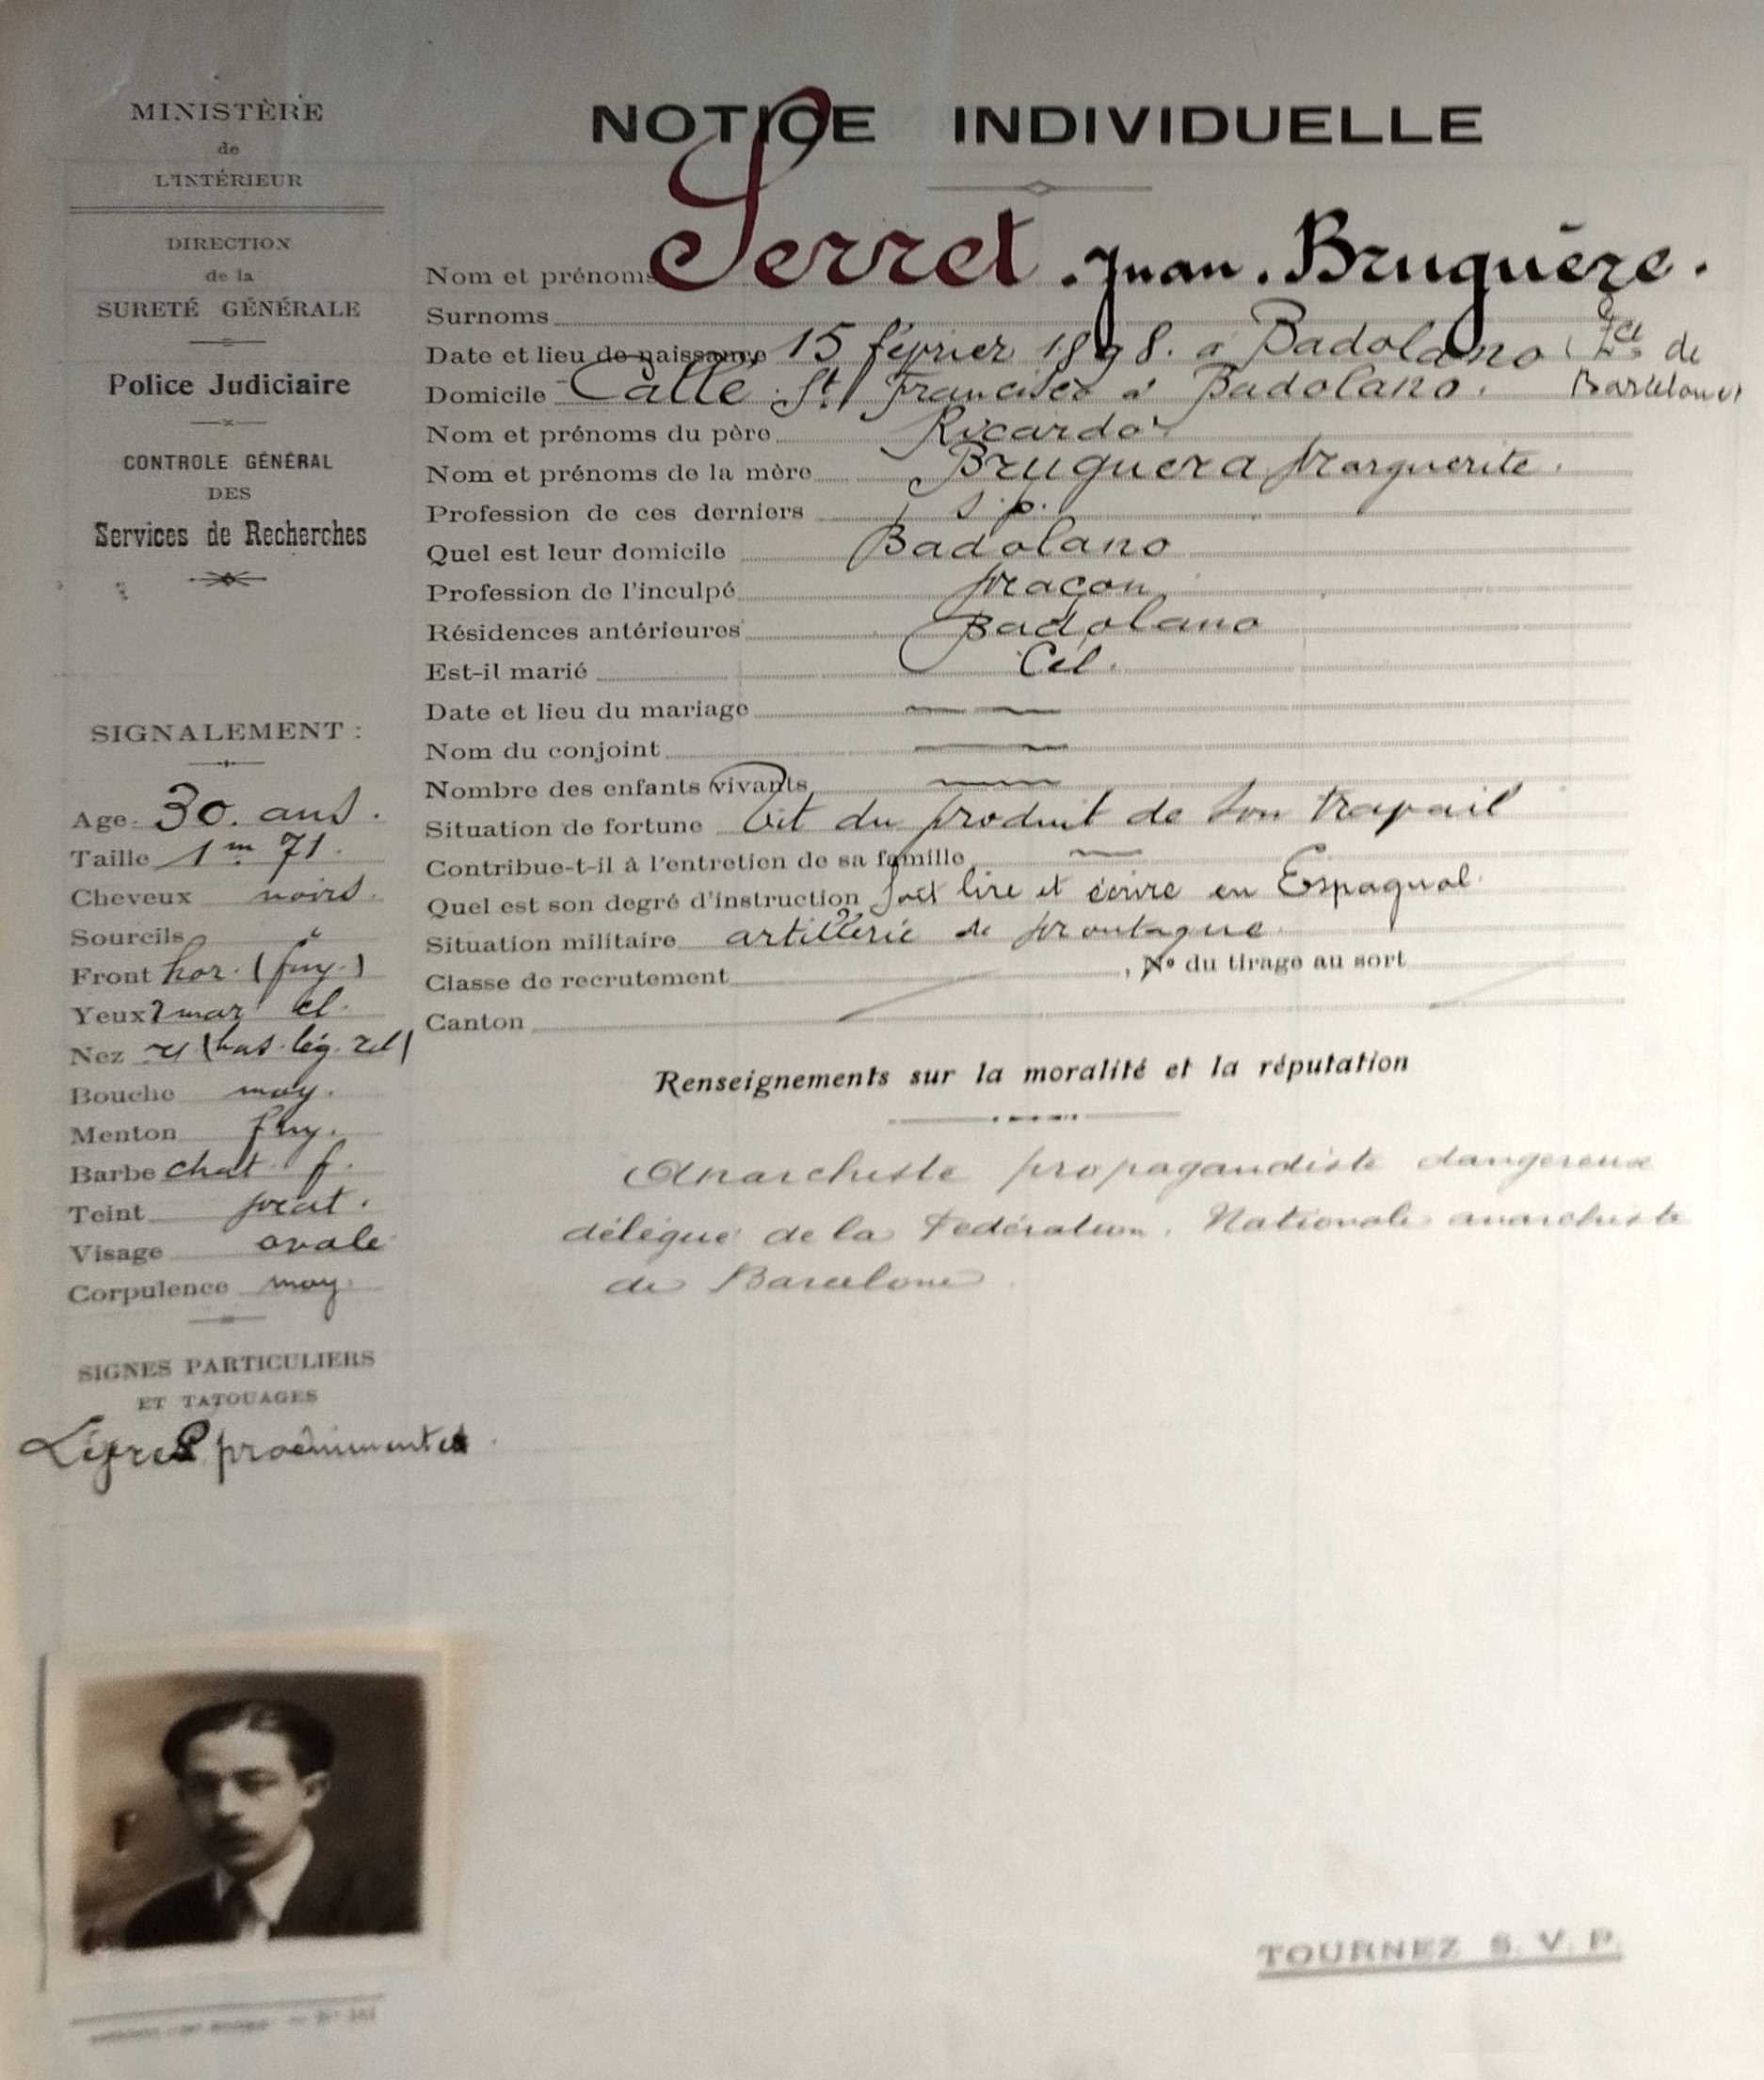 MINISTÈRE
de
L'INTÉRIEUR
DIRECTION
de la
SURETÉ GÉNÉRALE
Police Judiciaire
CONTROLE GÉNÉRAL
DES
Services de Recherches
NOTICE INDIVIDUELLE
Nom et prénoms Serret Juan. Bruguère.
Surnoms
Date et lieu de naissance 15 février 1898. à Badolano (
de
Domicile Calle St Francisco à Badolano. Barcelone)
Nom et prénoms du père Ricardo
Nom et prénoms de la mère Bruguera Marguerite.
Profession de ces derniers s.p.
Quel est leur domicile Badolano
Profession de l'inculpé Maçon
Résidences antérieures Badolano
Est-il marié Cél.
Date et lieu du mariage
Nom du conjoint
Nombre des enfants vivants
Situation de fortune Vit du produit de son travail
Contribue-t-il à l'entretien de sa famille
Quel est son degré d'instruction Sait lire et écrire en Espagnol
Situation militaire artillerie de Montagne
Classe de recrutement , No du tirage au sort
Canton
SIGNALEMENT :
Age 30. ans.
Taille 1m 71.
Cheveux noirs.
Sourcils "
Front hor. (fuy.)
Yeux 2 mar cl.
Nez (bas. lég. rel)
Bouche moy.
Menton fuy.
Barbe chat f.
Teint mat.
Visage ovale
Corpulence moy.
SIGNES PARTICULIERS
ET TATOUAGES
proéminentes
Renseignements sur la moralité et la réputation
Anarchiste propagandiste dangereux
délégué de la Fédération. Nationale anarchiste
de Barcelone
TOURNEZ S. V. P.